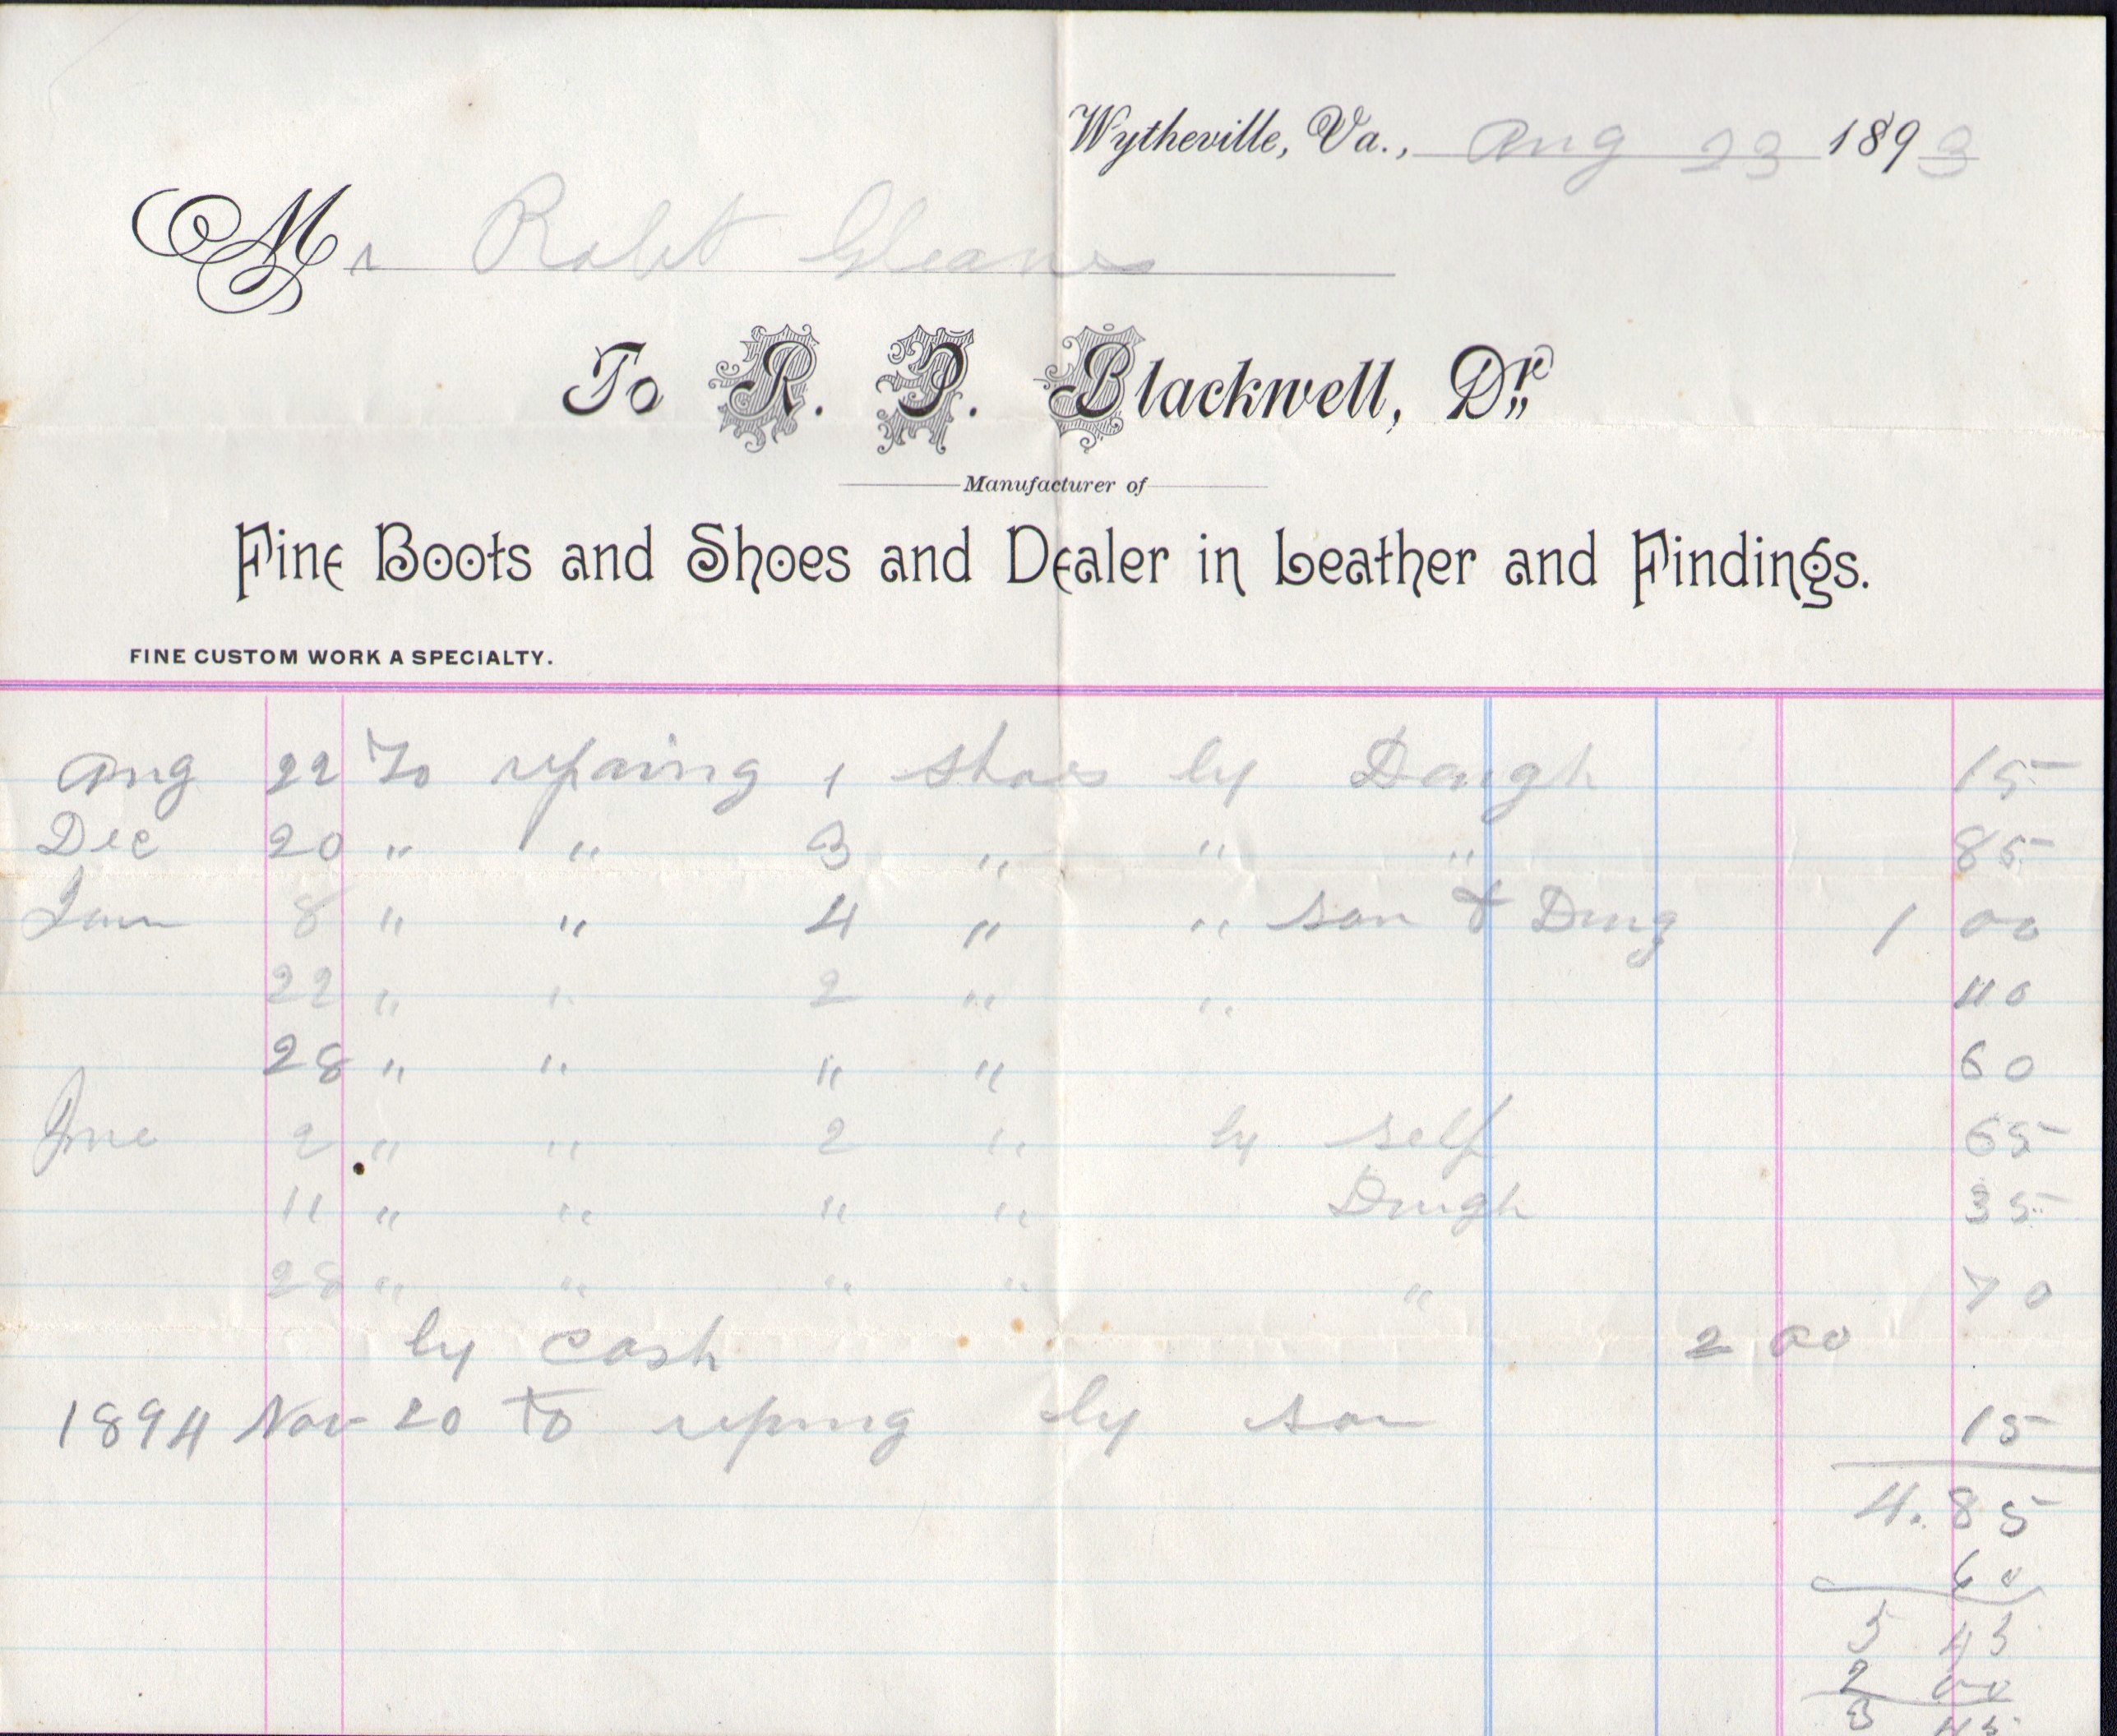 Wytheville, Va., Aug 23 1893
Mr Robt Gleaves
To R. P. Blackwell, Dr.
Manufacturer of
Fine Boots and Shoes and Dealer in Leather and Findings.
FINE CUSTOM WORK A SPECIALTY.
Aug 22 To repaing 1 shoes by Daugh 15
Dec 20 " " 3 " " " 85
Jan 8 " " 4 " " son & Daug 1 00
22 " " 2 " " 40
28 " " " " 60
June 2 " " 2 " by self 65
11 " " " " Daugh 35
28 " " " " " 70
by cash 2 00
1894 Nov 20 To reping by son 15
4.85
60
5 45
2 00
3 45